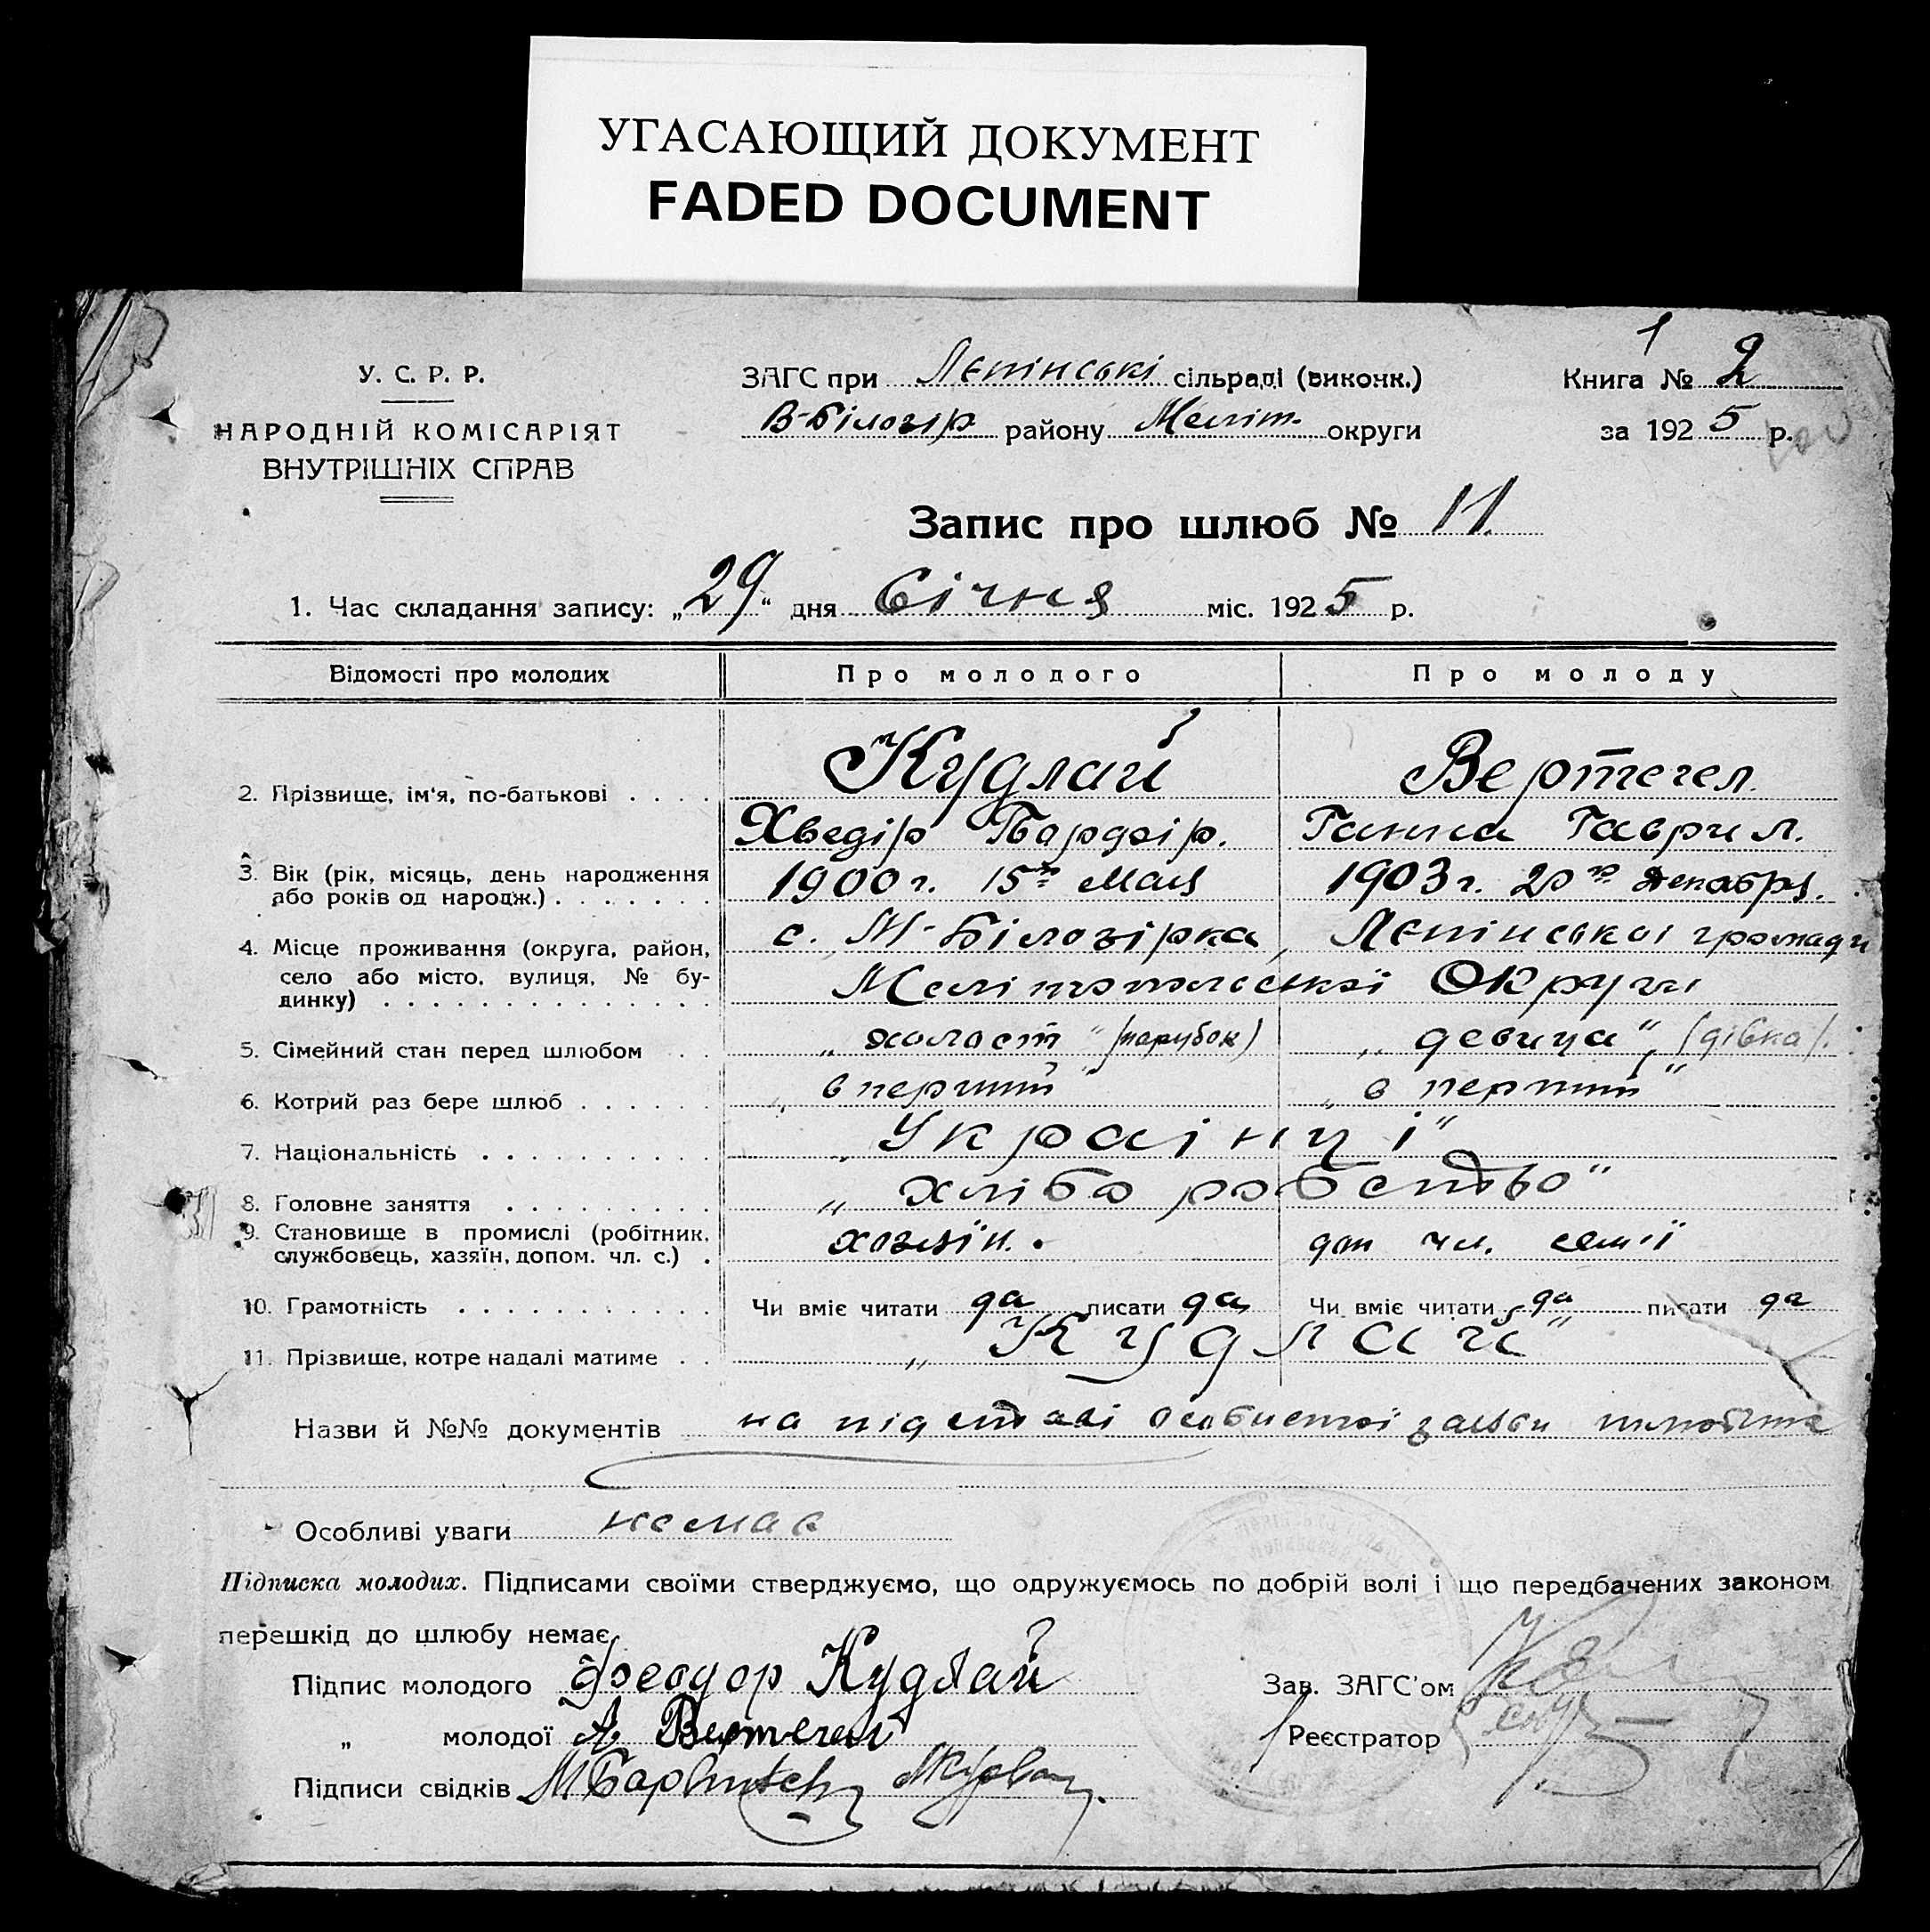 УГАСАЮЩИЙ ДОКУМЕНТ
FADED DOCUMENT
У. С. Р. Р.
НАРОДНІЙ КОМІСАРІЯТ
ВНУТРІШНІХ СПРАВ
ЗАГС при Лєпінські сільраді (виконк.)
В-Білозір району Меліт. округи
1
Книга № 2
за 1925 р.
Запис про шлюб № 11.
1. Час складання запису: „29“ дня Січня міс. 1925 р.
Відомості про молодих Про молодого Про молоду
2. Прізвище, ім'я, по-батькові . . . . Кудлай Вертегел.
Хведір Ганна Гаврил.
3. Вік (рік, місяць, день народження або років од народж.) . . . . . . . 1900 г. 15го Мая 1903 г. 20го декабря.
4. Місце проживання (округа, район, село або місто, вулиця, № будинку) . . . . . . . . . . . . . . с. М-Білозірка, Лєпінськоі громади
Мелітопольскої Округи
5. Сімейний стан перед шлюбом . . „холост“ (парубок) „девица“, (дівка).
6. Котрий раз бере шлюб . . . . . . „в перший“ „в перший“
7. Національність . . . . . . . . . . „Украінці“
8. Головне заняття . . . . . . . . . „хліборобство“
9. Становище в промислі (робітник, службовець, хазяїн, допом. чл. с.) . хозяїн. доп чл. семії
10. Грамотність . . . . . . . . . . . Чи вміє читати да писати да Чи вміє читати да писати да
11. Прізвище, котре надалі матиме . . „Кудлай“
Назви й №№ документів на підставі особистої заяви
Особливі уваги немає
Підписка молодих. Підписами своїми стверджуємо, що одружуємось по добрій волі і що передбачених законом
перешкід до шлюбу немає.
Підпис молодого Феодор Кудлай
„ молодої А Вертегел
Підписи свідків
Зав. ЗАГС'ом
Реєстратор